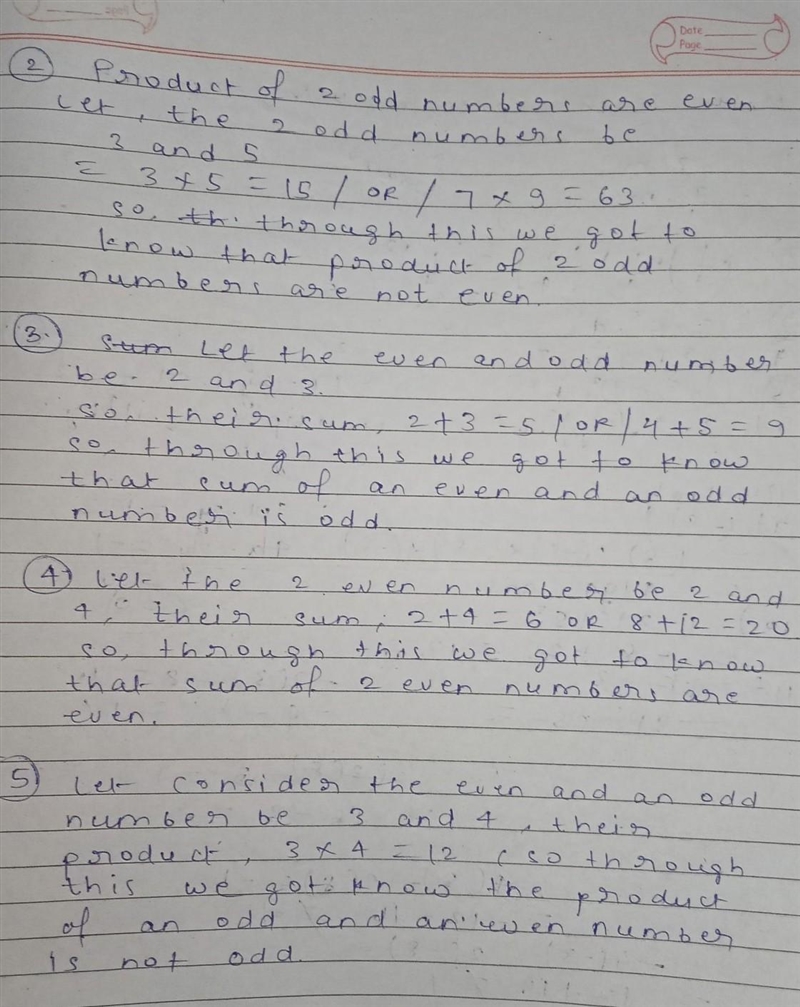 Date
Page
2 Product of 2 odd numbers are even
Let, the 2 odd numbers be
3 and 5
= 3 × 5 = 15 / OR / 7 × 9 = 63.
so, th. through this we got to
know that product of 2 odd
numbers are not even.
3. Sum Let the even and odd number
be 2 and 3.
So, their sum, 2+3 = 5 / OR / 4+5 = 9
so, through this we got to know
that sum of an even and an odd
number is odd.
4) Let the 2 even number be 2 and
4, their sum, 2+4 = 6 OR 8+12 = 20
so, through this we got to know
that sum of 2 even numbers are
even.
5) Let consider the even and an odd
number be 3 and 4, their
product, 3 × 4 = 12 (so through
this we got know the product
of an odd and an even number
is not odd.